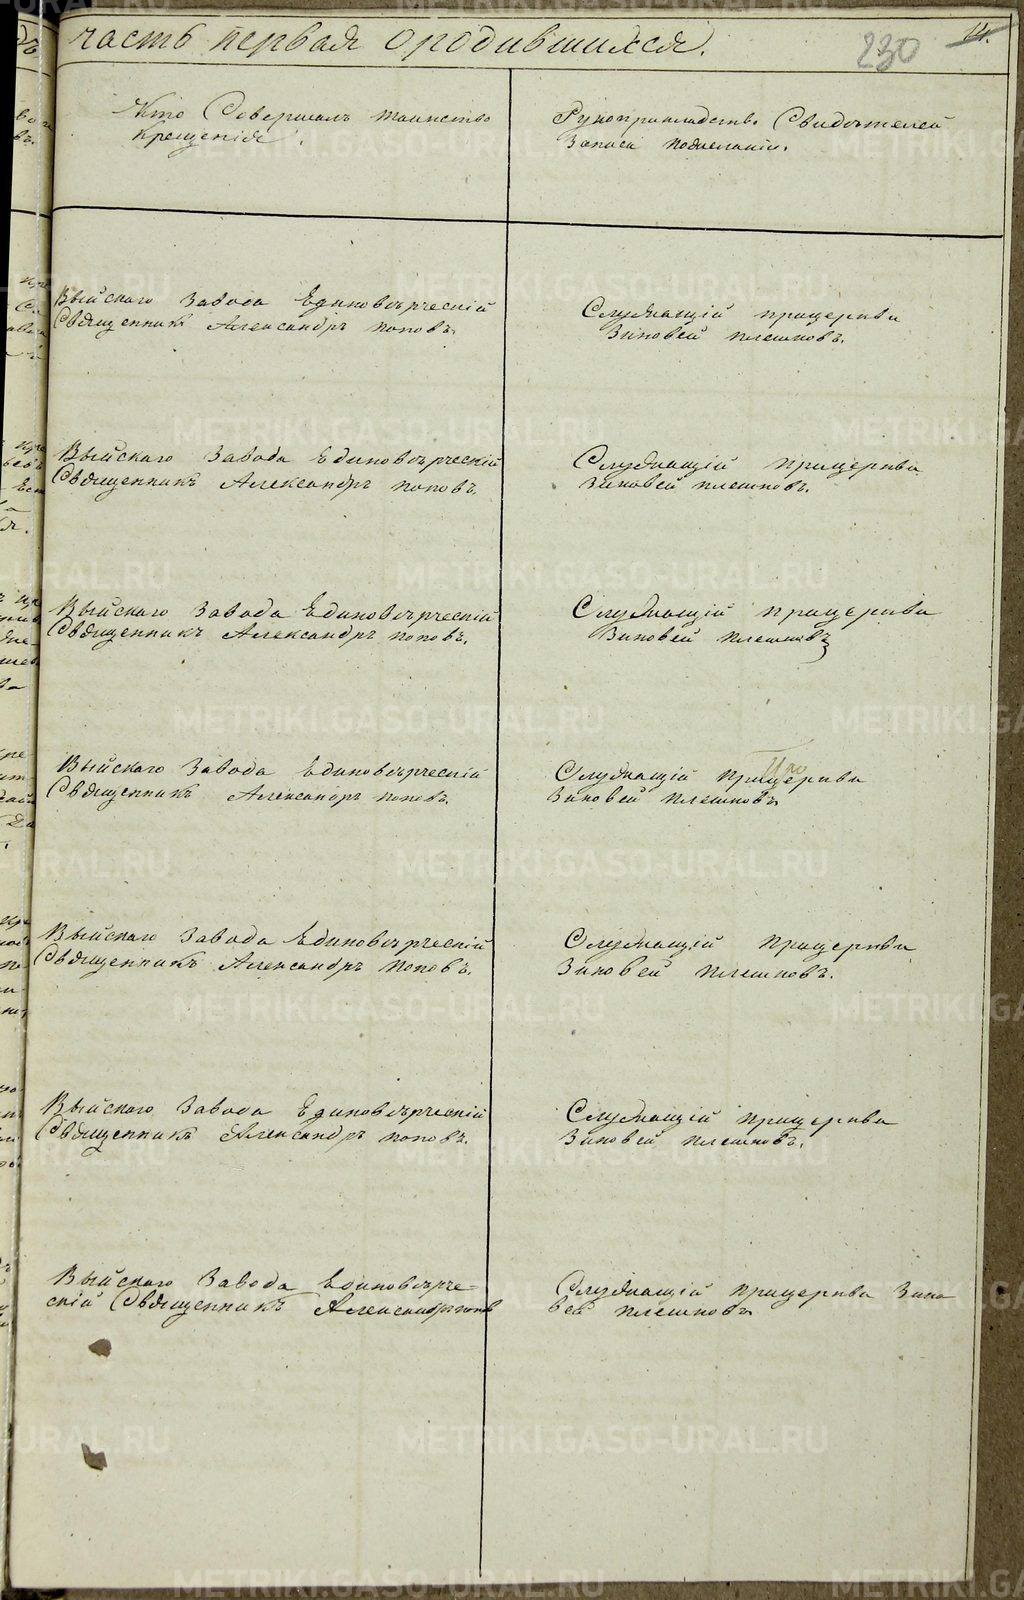 часть первая о родившихся.
230
Кто Совершалъ таинство
Крещенія.
Рукоприкладство Свидѣтелей
Записи пожеланію.
Выйскаго Завода Единовѣрческій
Священникъ Александръ поповъ.
Служащій прицерква
Зиновей плешковъ.
Выйскаго Завода Единовѣрческій
Священникъ Александръ поповъ.
Служащій прицерква
Зиновей плешковъ.
Выйскаго Завода Единовѣрческій
Священникъ Александръ поповъ.
Служащій прицерква
Зиновей плешковъ
Выйскаго Завода Единовѣрческій
Священникъ Александръ поповъ.
Служащій прицерква
Зиновей плешковъ
Выйскаго Завода Единовѣрческій
Священникъ Александръ поповъ.
Служащій прицерква
Зиновей плешковъ.
Выйскаго Завода Единовѣрческій
Священникъ Александръ поповъ.
Служащій прицерква
Зиновей плешковъ.
Выйскаго Завода Единовѣрче-
скій Священникъ Александръ поповъ
Служащій прицерква Зино
вей плешковъ
METRIKI.GASO-URAL.RU